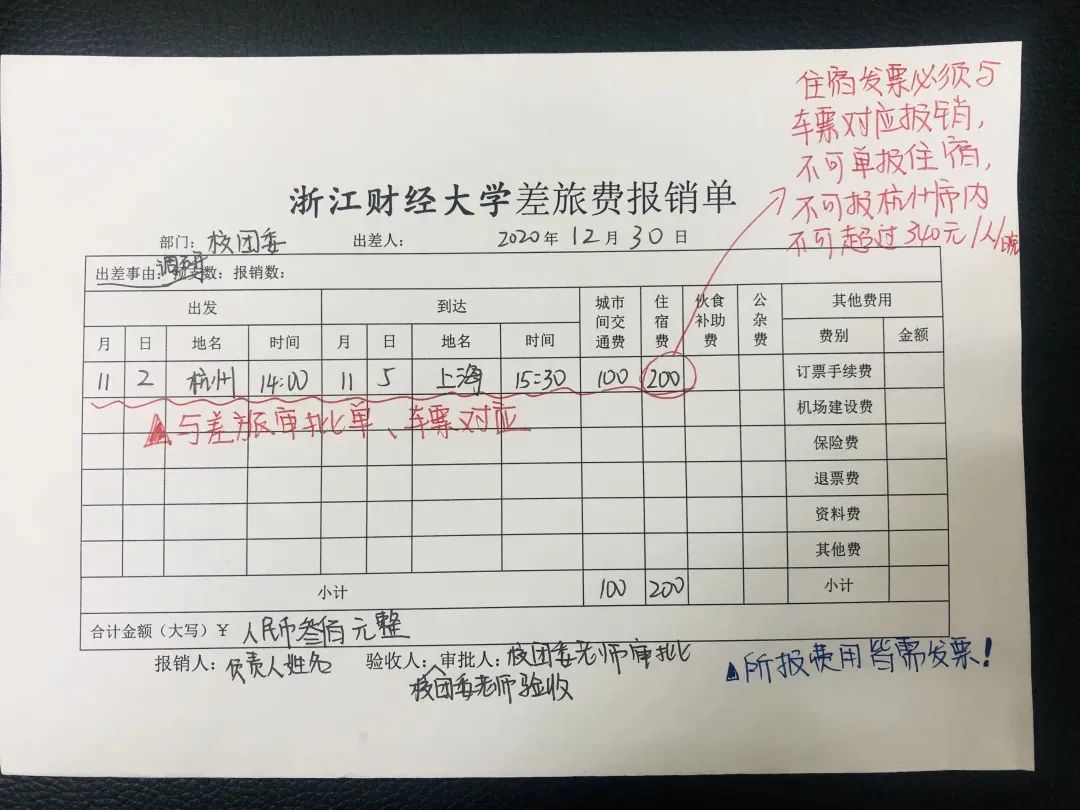 住宿发票必须与
车票对应报销,
不可单报住宿,
不可报杭州市内
不可超过340元/人/晚
浙江财经大学差旅费报销单
部门: 校团委 出差人: 2020年12月30日
出差事由: 调研 数: 报销数:
出发 到达 城市间交通费 住宿费 伙食补助费 公杂费 其他费用
月 日 地名 时间 月 日 地名 时间 费别 金额
11 2 杭州 14:00 11 5 上海 15:30 100 200 订票手续费
▲与差旅审批单、车票对应
机场建设费
保险费
退票费
资料费
其他费
小计 100 200 小计
合计金额(大写)¥ 人民币叁佰元整
报销人: 负责人姓名 验收人: 审批人: 校团委老师审批
校团委老师验收
▲所报费用皆需发票!